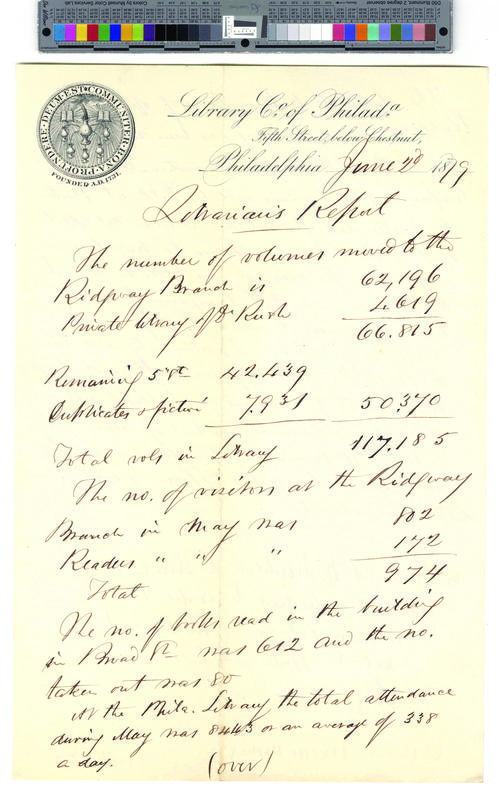 DEUM·EST·COMMUNITER·BONA·PROFUNDERE
FOUNDED A.D. 1731.
Library Co. of Philada.
Fifth Street, below Chestnut,
Philadelphia June 2d 1879
Librarian's Report
The number of volumes moved to the
Ridgway Branch is 62,196
Private library of Dr Rush 4.619
66.815
Remaining 5th St 42.439
Duplicates & fiction 7.931 50.370
Total vols in Library 117.185
The no. of visitors at the Ridgway
Branch in May was 802
Readers " " " 172
Total 974
The no. of books read in the building
in Broad St was 612 and the no.
taken out was 80
At the Phila. Library the total attendance
during May was 8443 or an average of 338
a day. (over)